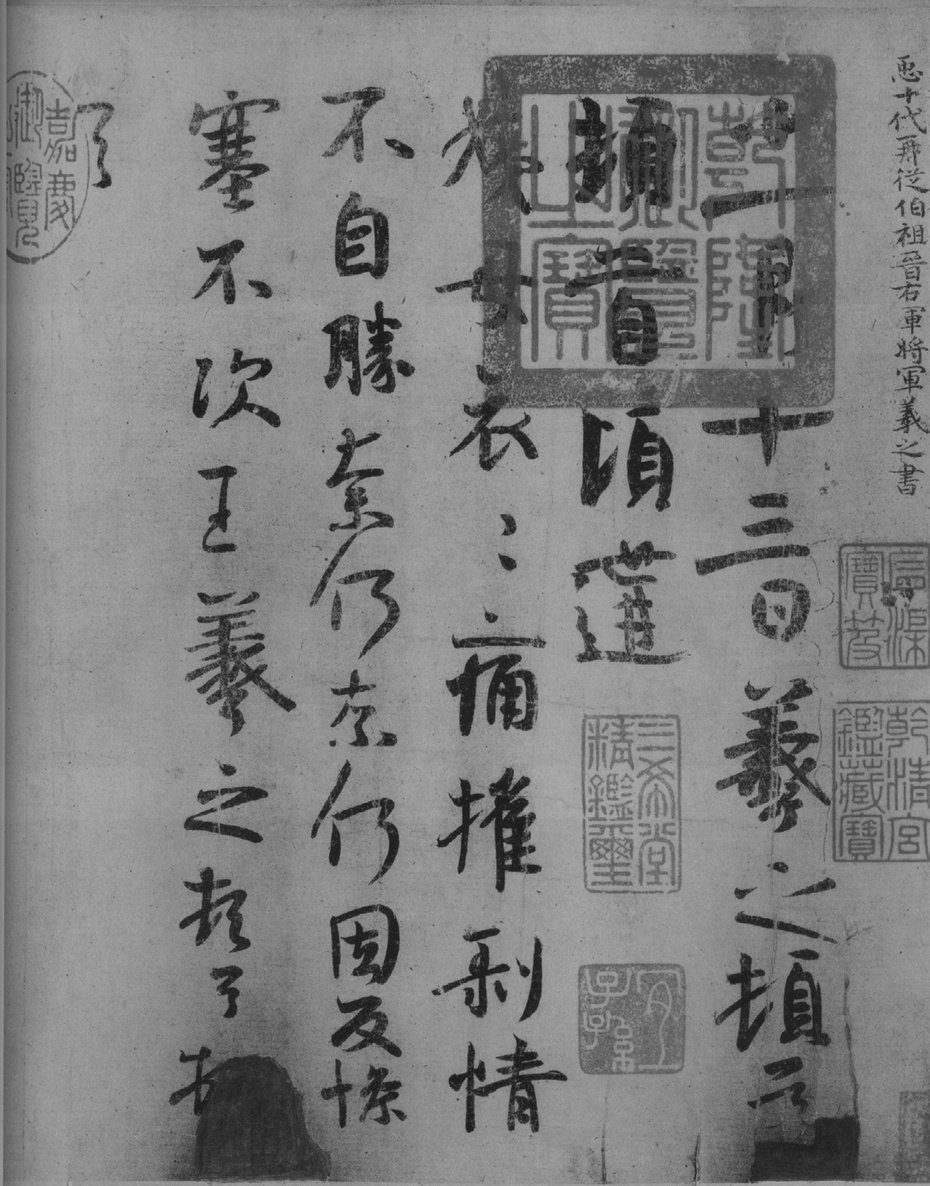 𢘑十代再從伯祖晉右軍將軍羲之書
十一月十三日羲之頓首
頓首頃遘
姨母哀〻痛摧剝情
不自勝奈何奈何因反慘
塞不次王羲之頓首頓
首
石渠寶笈
乾清宮鑑藏寶
乾隆御覽之寶
三希堂精鑑璽
宜子孫
嘉慶御覽